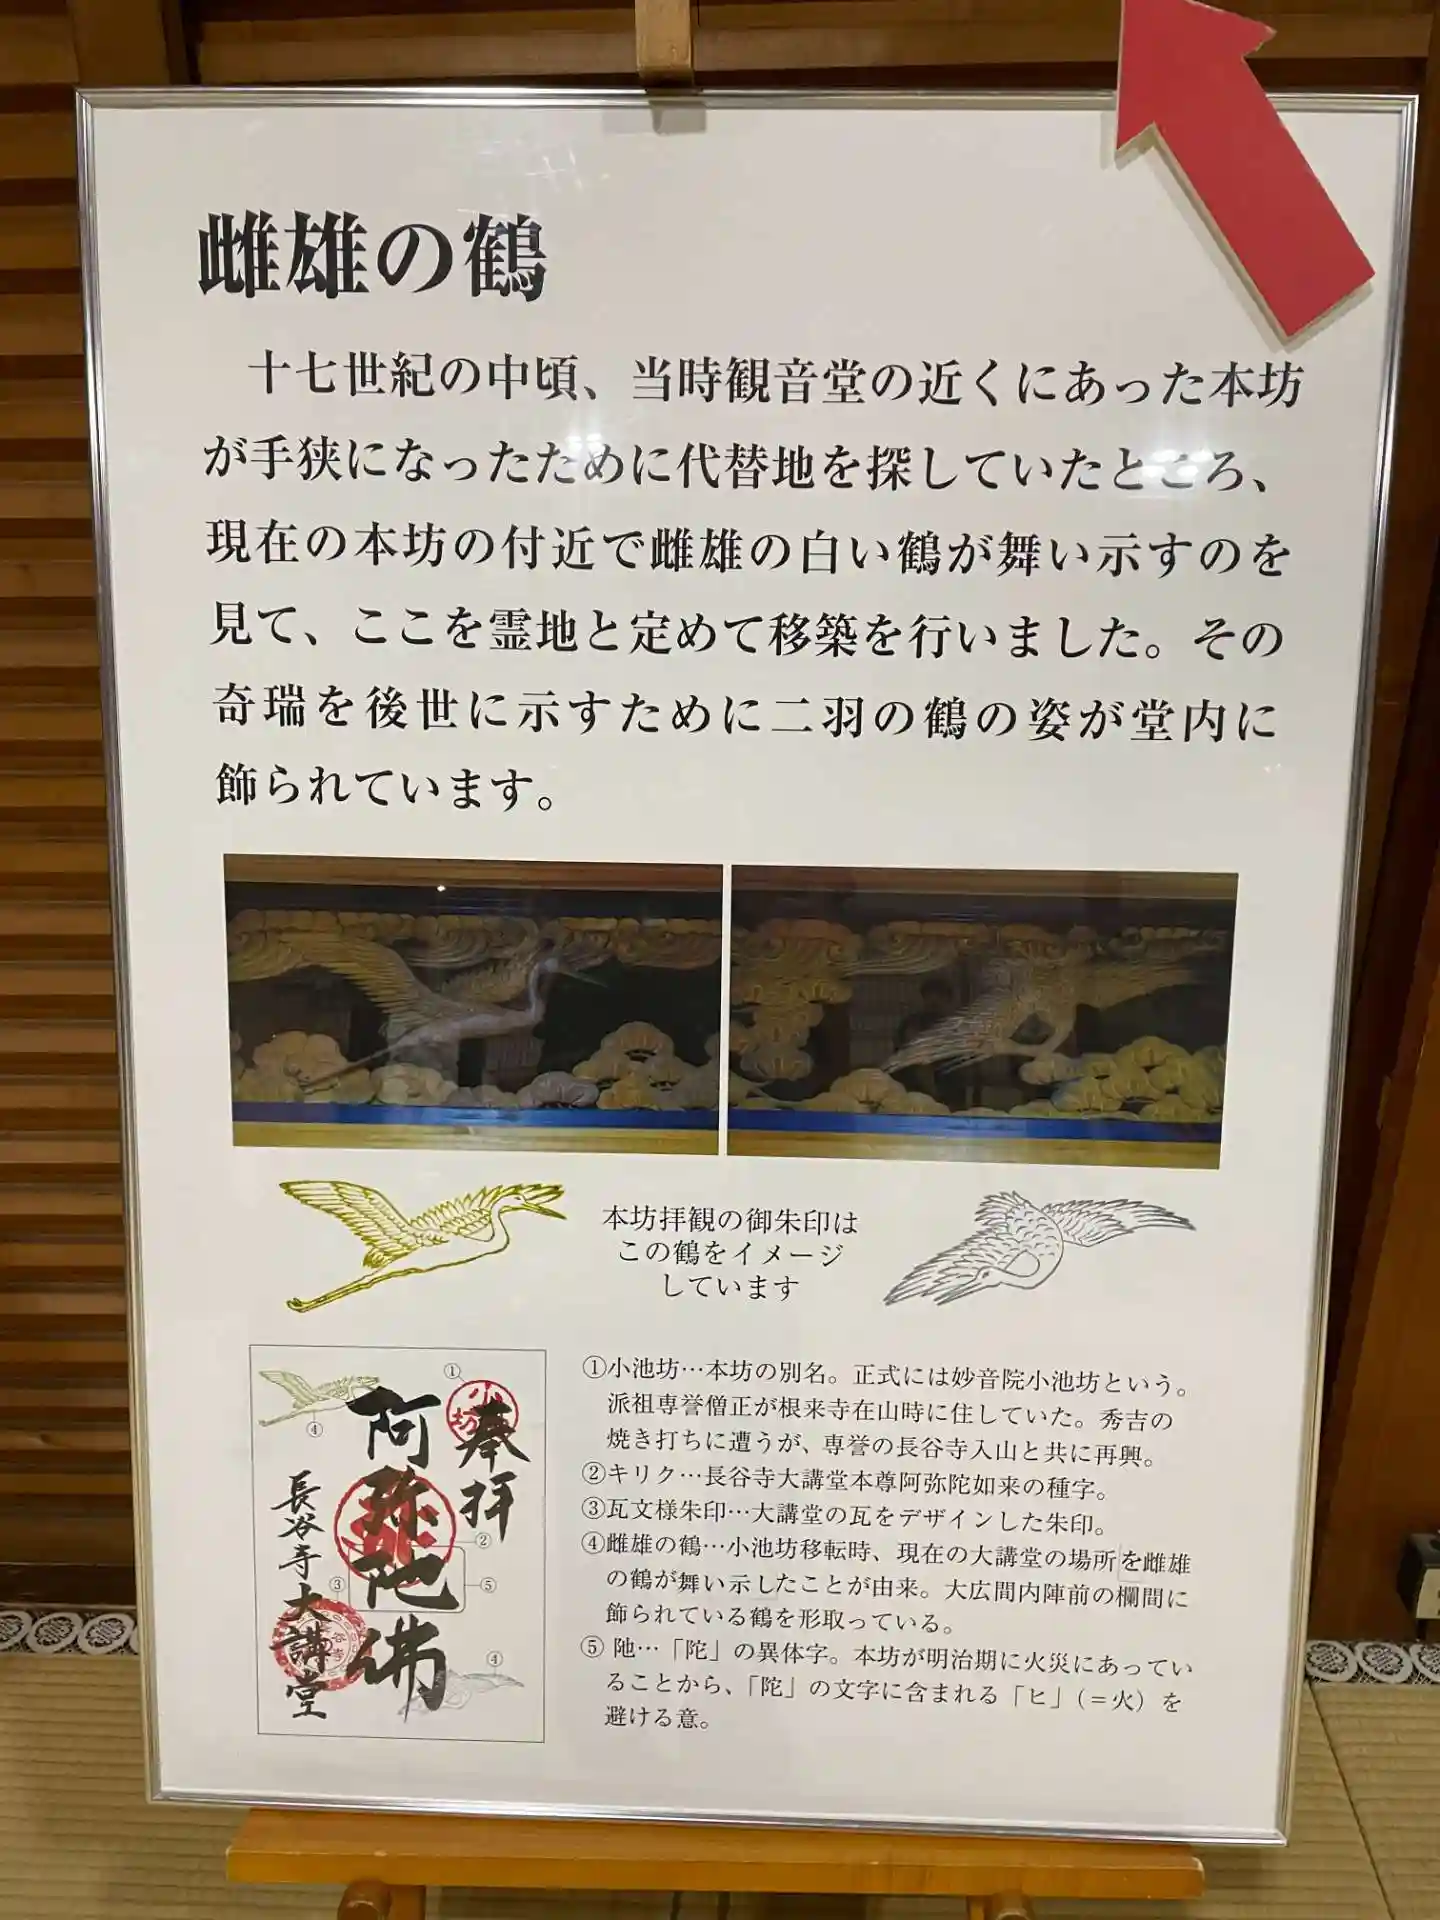 雌雄の鶴
十七世紀の中頃、当時観音堂の近くにあった本坊
が手狭になったために代替地を探していたところ、
現在の本坊の付近で雌雄の白い鶴が舞い示すのを
見て、ここを霊地と定めて移築を行いました。その
奇瑞を後世に示すために二羽の鶴の姿が堂内に
飾られています。
本坊拝観の御朱印は
この鶴をイメージ
しています
①
小池坊
奉拝
②
④
阿弥阤佛
⑤
③
長谷寺大講堂
④
①小池坊…本坊の別名。正式には妙音院小池坊という。
派祖専誉僧正が根来寺在山時に住していた。秀吉の
焼き打ちに遭うが、専誉の長谷寺入山と共に再興。
②キリク…長谷寺大講堂本尊阿弥陀如来の種字。
③瓦文様朱印…大講堂の瓦をデザインした朱印。
④雌雄の鶴…小池坊移転時、現在の大講堂の場所を雌雄
の鶴が舞い示したことが由来。大広間内陣前の欄間に
飾られている鶴を形取っている。
⑤ 阤…「陀」の異体字。本坊が明治期に火災にあってい
ることから、「陀」の文字に含まれる「ヒ」(＝火）を
避ける意。